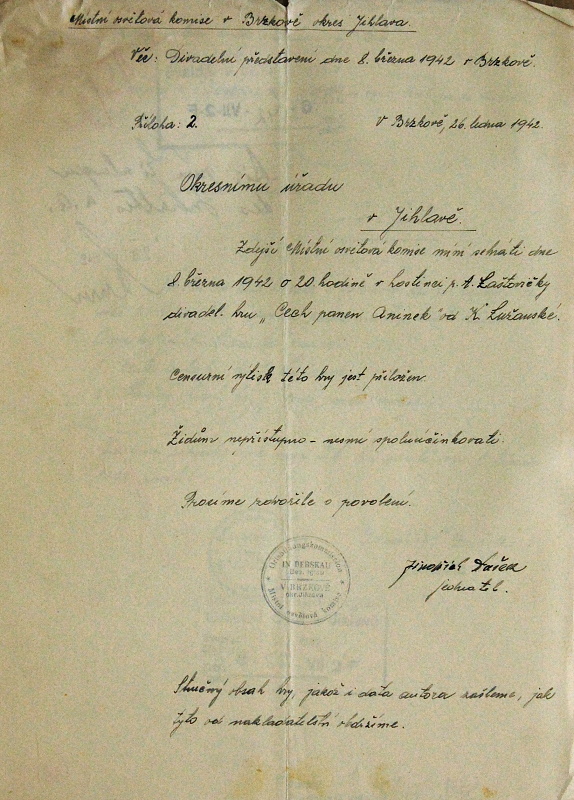 Místní osvětová komise v Brzkově okres Jihlava.
Věc: Divadelní představení dne 8. března 1942 v Brzkově.
Příloha: 2.
V Brzkově, 26. ledna 1942.
Okresnímu úřadu
v Jihlavě.
Zdejší Místní osvětová komise míní sehrati dne
8. března 1942 o 20. hodině v hostinci p. A. Lastovičky
divadel. hru „Cech panen Aninek" od K. Lužanské.
Censurní výtisk této hry jest přiložen.
Židům nepřístupno - nesmí spoluúčinkovati.
Prosíme zdvořile o povolení.
IN BERSKAU
V BRZKOVĚ
Místní osvětová komise
Jindřich
jednatel.
Stručný obsah hry, jakož i data autora zašleme, jak
tyto od nakladatelství obdržíme.